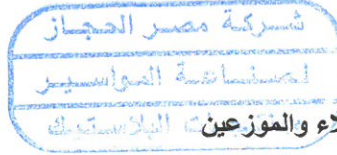 شركة مصر الحجاز
لصناعة المواسير
لاء والموزعين
البلاستيك